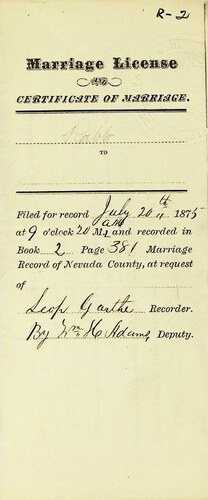 R-2
Marriage License
AND
CERTIFICATE OF MARRIAGE.
TO
Filed for record July 20th 1875
at 9 o'clock 20 M. AM and recorded in
Book 2 Page 381 Marriage
Record of Nevada County, at request
of
Leop Garthe Recorder.
By Wm H Adams, Deputy.